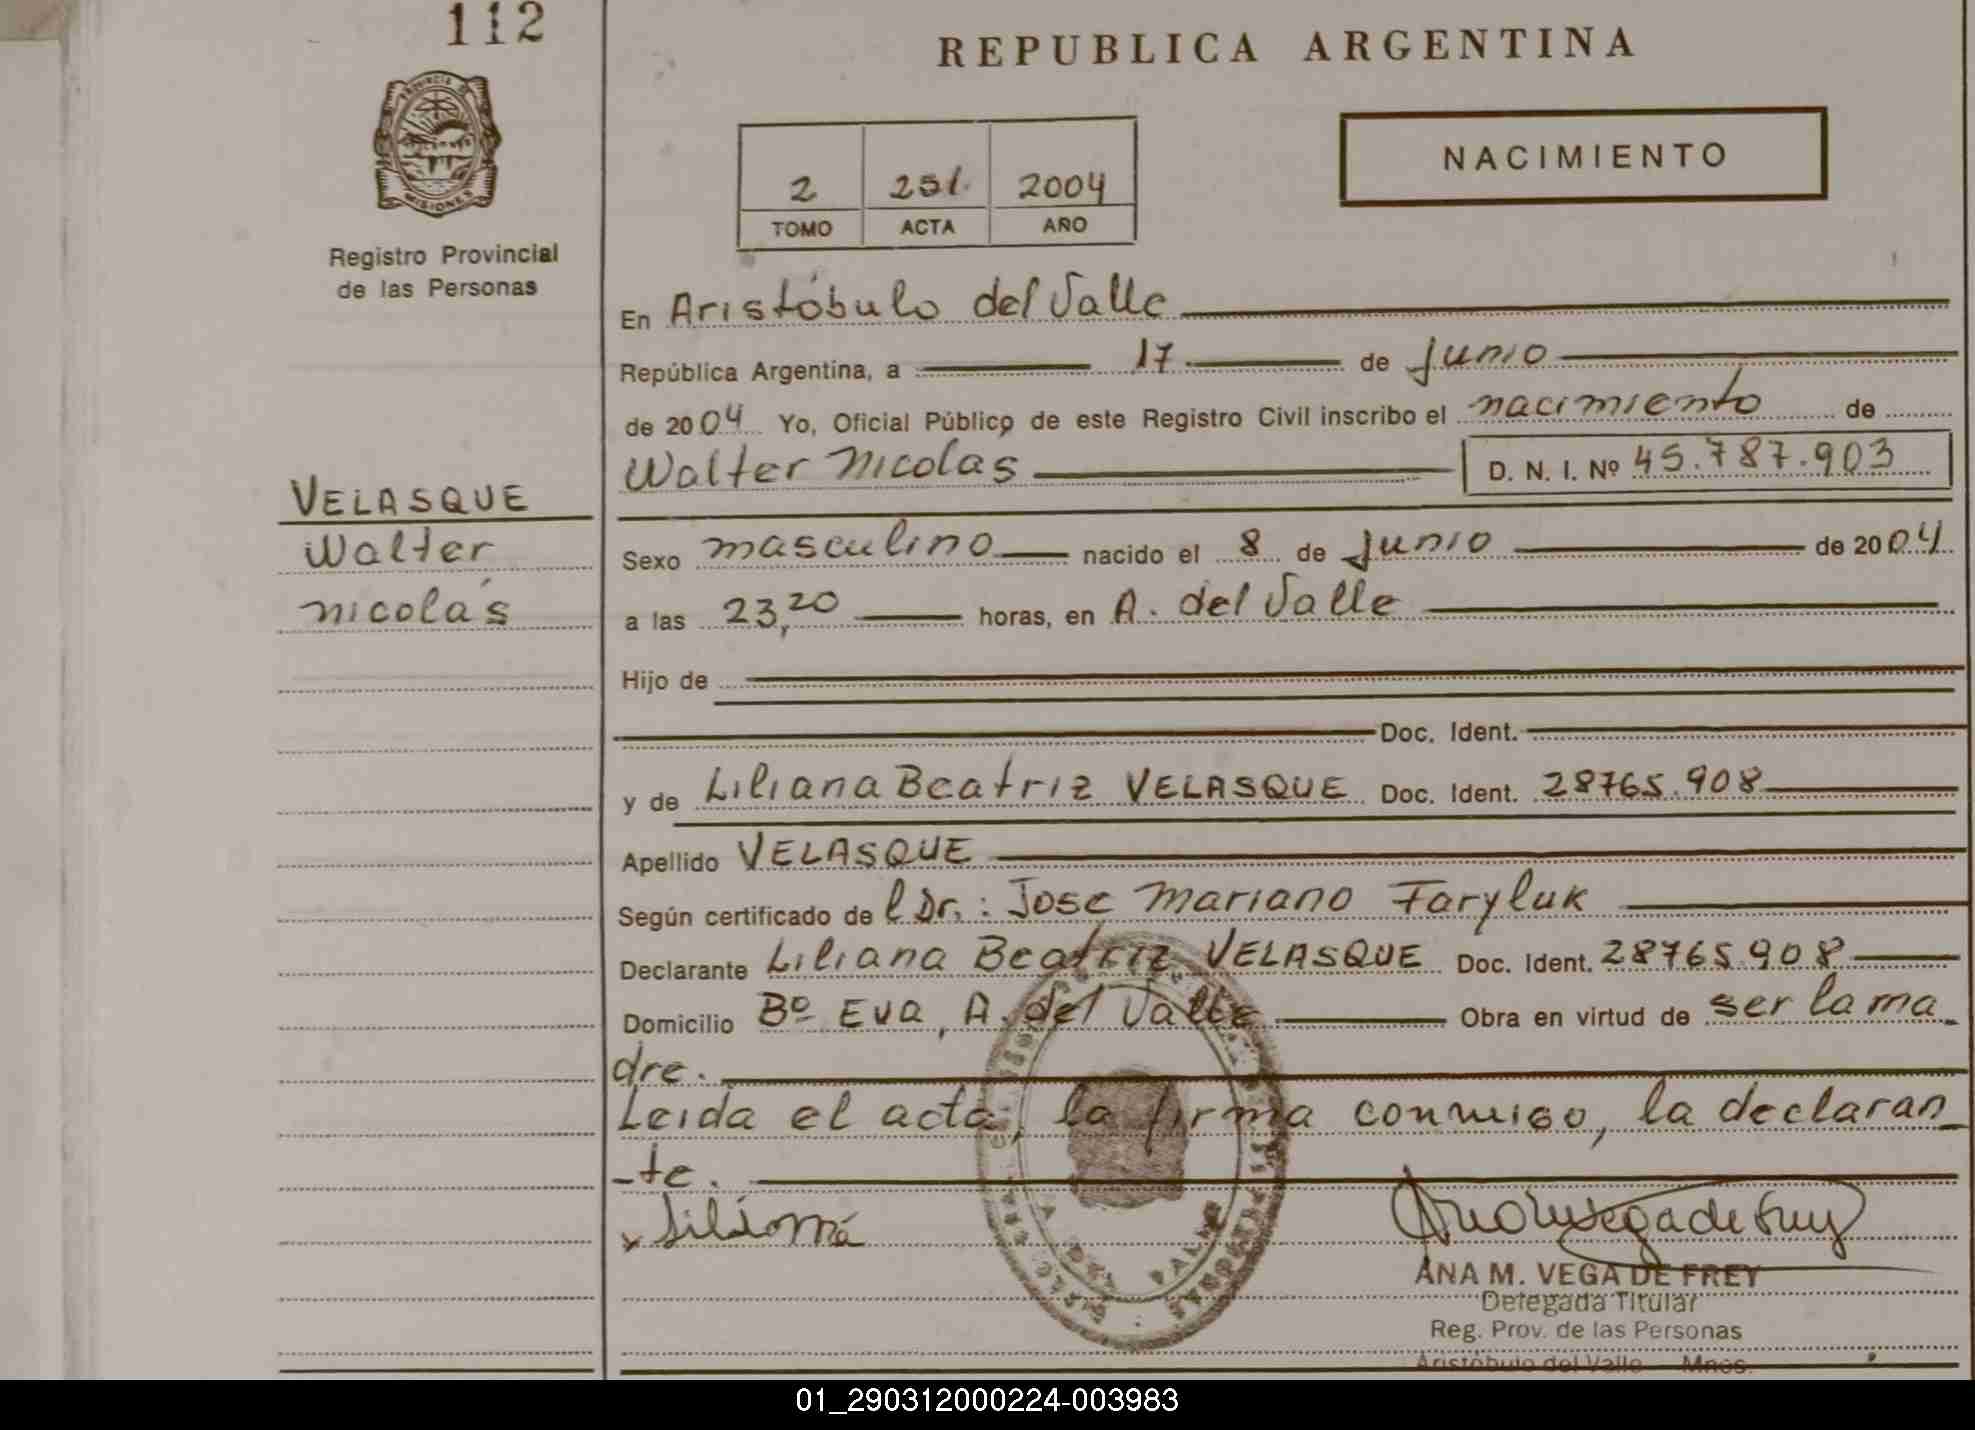 112
REPUBLICA ARGENTINA
NACIMIENTO
2 251. 2004
TOMO ACTA AÑO
PROVINCIA DE
MISIONES
Registro Provincial
de las Personas
En Aristóbulo del Valle
República Argentina, a 17 de Junio
de 2004 Yo, Oficial Público de este Registro Civil inscribo el nacimiento de
Walter Nicolas D. N. I. Nº 45.787.903
VELASQUE
Walter
Nicolás
Sexo masculino nacido el 8 de Junio de 2004
a las 23,20 horas, en A. del Valle
Hijo de
Doc. Ident.
y de Liliana Beatriz VELASQUE Doc. Ident. 28765.908
Apellido VELASQUE
Según certificado de l Dr.: Jose Mariano Faryluk
Declarante Liliana Beatriz VELASQUE Doc. Ident. 28765.908
Domicilio Bº Eva, A. del Valle Obra en virtud de ser la ma_
dre.
Leida el acta, la firma conmigo, la declaran_
-te.
x Liliana
ANA M. VEGA DE FREY
Delegada Titular
Reg. Prov. de las Personas
Aristóbulo del Valle - Mnes.
01_290312000224-003983